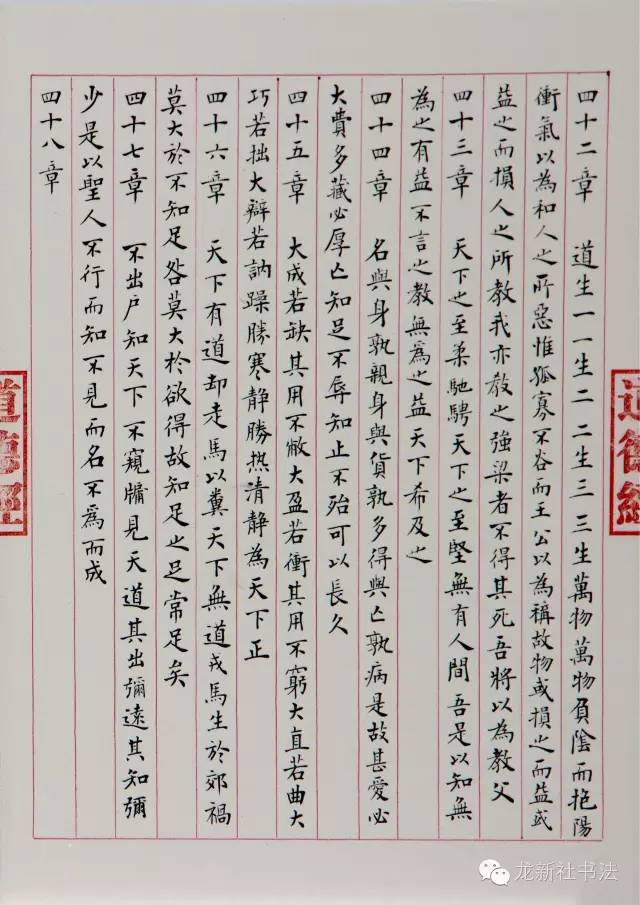 四十二章 道生一一生二二生三三生萬物萬物負陰而抱陽
衝氣以為和人之所惡惟孤寡不谷而王公以為稱故物或損之而益或
益之而損人之所教我亦教之強梁者不得其死吾將以為教父
四十三章 天下之至柔馳騁天下之至堅無有人間吾是以知無
為之有益不言之教無為之益天下希及之
四十四章 名與身孰親身與貨孰多得與亡孰病是故甚愛必
大費多藏必厚亡知足不辱知止不殆可以長久
四十五章 大成若缺其用不敝大盈若衝其用不窮大直若曲大
巧若拙大辯若訥躁勝寒静勝热清静為天下正
四十六章 天下有道却走馬以糞天下無道戎馬生於郊禍
莫大於不知足咎莫大於欲得故知足之足常足矣
四十七章 不出户知天下不窺牖見天道其出彌遠其知彌
少是以聖人不行而知不見而名不為而成
四十八章
道德經
道德經
龙新社书法